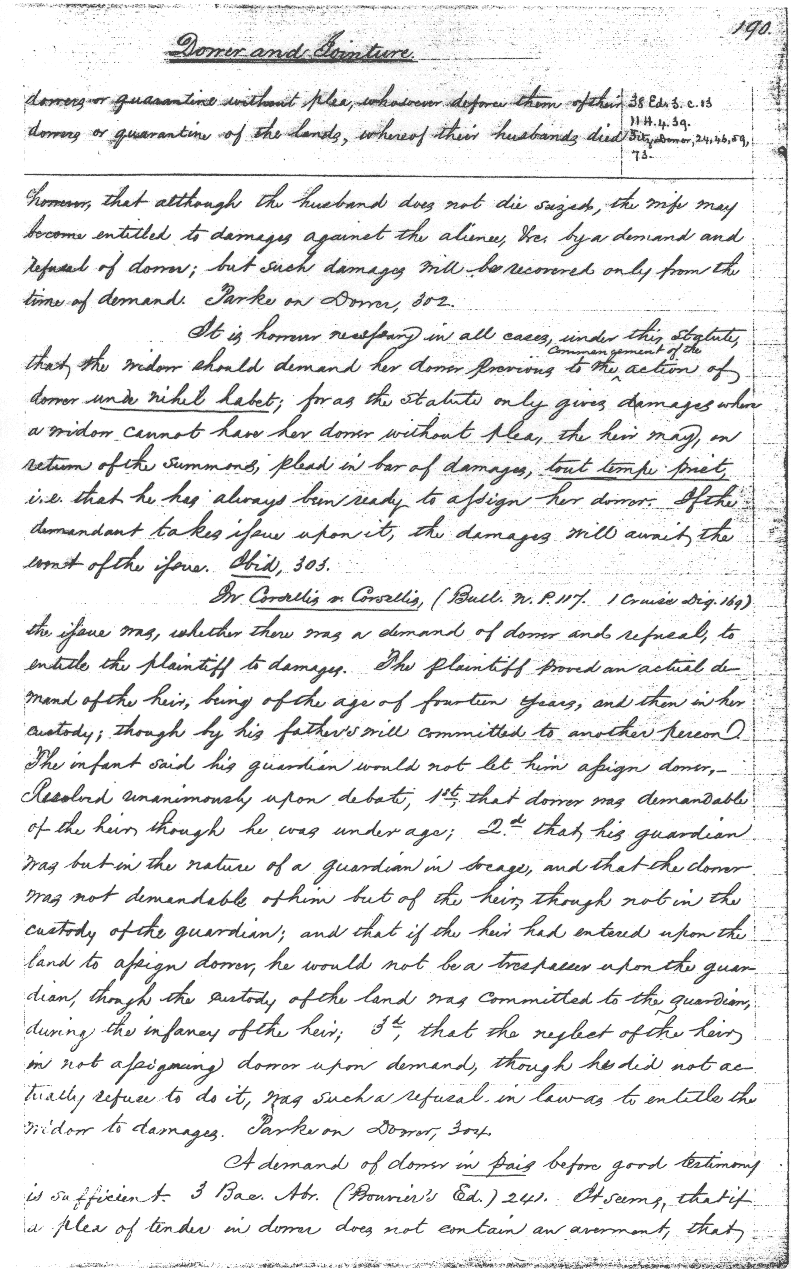 190.
Dower and Jointure.
dowers or quarantine without plea, whosoever deforce them of their
dowers or quarantine of the lands, whereof their husbands died
38 Ed. 3. c. 13
11 H. 4. 39.
Fitz. Dower, 24, 45, 59,
73.
however, that although the husband does not die seized, the wife may
become entitled to damages against the alienee, &c. by a demand and
refusal of dower; but such damages will be recovered only from the
time of demand. Parke on Dower, 302.
It is however necessary in all cases, under this statute,
that the widow should demand her dower previous to the commencement of the action of
dower unde nihil habet; for as the statute only gives damages where
a widow cannot have her dower without plea, the heir may, on
return of the summons, plead in bar of damages, tout temps prist,
i.e. that he has always been ready to assign her dower. If the
demandant takes issue upon it, the damages will await the
event of the issue. Ibid, 303.
In Corsellis v. Corsellis, (Bull. N. P. 117. 1 Cruise Dig. 169)
the issue was, whether there was a demand of dower and refusal, to
entitle the plaintiff to damages. The plaintiff proved an actual de-
mand of the heir, being of the age of fourteen years, and then in her
custody; though by his father's will committed to another person.
The infant said his guardian would not let him assign dower,-
Resolved unanimously upon debate, 1st, that dower was demandable
of the heir, though he was under age; 2.d that his guardian
was but in the nature of a guardian in socage, and that the dower
was not demandable of him but of the heir, though not in the
custody of the guardian; and that if the heir had entered upon the
land to assign dower, he would not be a trespasser upon the guar-
dian, though the custody of the land was committed to the guardian,
during the infancy of the heir; 3d, that the neglect of the heir,
in not assigning dower upon demand, though he did not ac-
tually refuse to do it, was such a refusal in law as to entitle the
widow to damages. Parke on Dower, 304.
A demand of dower in pais before good testimony
is sufficient. 3 Bac. Abr. (Bouvier's Ed.) 241. It seems, that if
a plea of tender in dower does not contain an averment, that